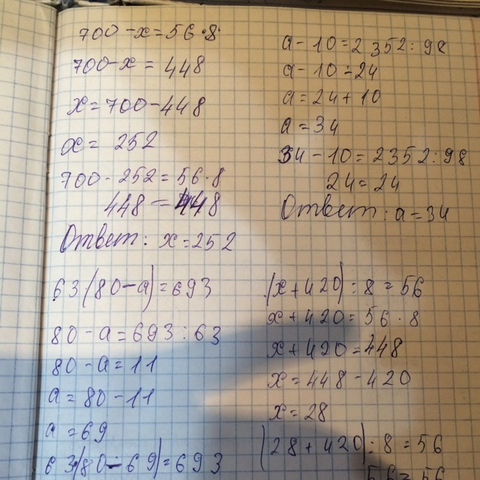 700-x=56·8
700-x=448
x=700-448
x=252
700-252=56·8
448=448
Ответ: x=252
a-10=2352:98
a-10=24
a=24+10
a=34
34-10=2352:98
24=24
Ответ: a=34
63(80-a)=693
80-a=693:63
80-a=11
a=80-11
a=69
63(80-69)=693
(x+420):8=56
x+420=56·8
x+420=448
x=448-420
x=28
(28+420):8=56
56=56